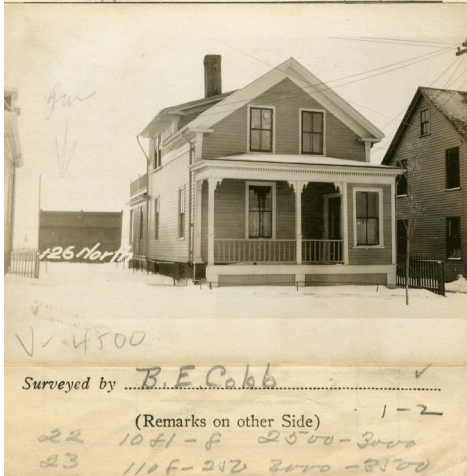 126 North
V-4500
Surveyed by B.E. Cobb
1-2
(Remarks on other Side)
22 1081-8 2500-3000
23 1108-252 3000-2500